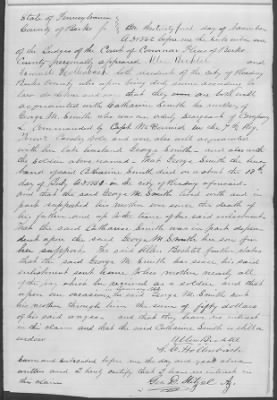 State of Pennsylvania
County of Berks ss On the twenty first day of November
A.D. 1862 before me the
of the Judges of the Court of Common Pleas of Berks
County personally appeared Allen Bechtel and
Samuel both residents of the City of Reading
Berks County who upon being duly according to
law do and say that they are both well
acquainted with Catharine Smith the mother of
George M. Smith who was an orderly Sergeant of Company
commanded by Capt. in the 7th Reg.
and was also well acquainted
with her late husband George Smith and also with
the soldier above named That George Smith the hus-
band of said Catharine Smith died on about the 18th
day of in the city of Reading aforesaid
and that the said George M. Smith did and in
part supported his mother ever since the death of
his father and up to the time of his said enlistment
That the said Catharine Smith was in part depen-
dent upon the said George M. Smith her son for
her support. The said Allen Bechtel further states
that the said George M. Smith has since his said
enlistment sent home to his mother nearly all
of the pay which he received as a soldier and that
upon one occasion he said George M. Smith sent
his mother through him the sum of fifty dollars
of his said wages, and that they have no interest
in this claim and that the said Catharine Smith is still a
widow
Allen Bechtel
Sworn and subscribed before me the day and year above
written and I hereby certify that I have no interest in
this claim